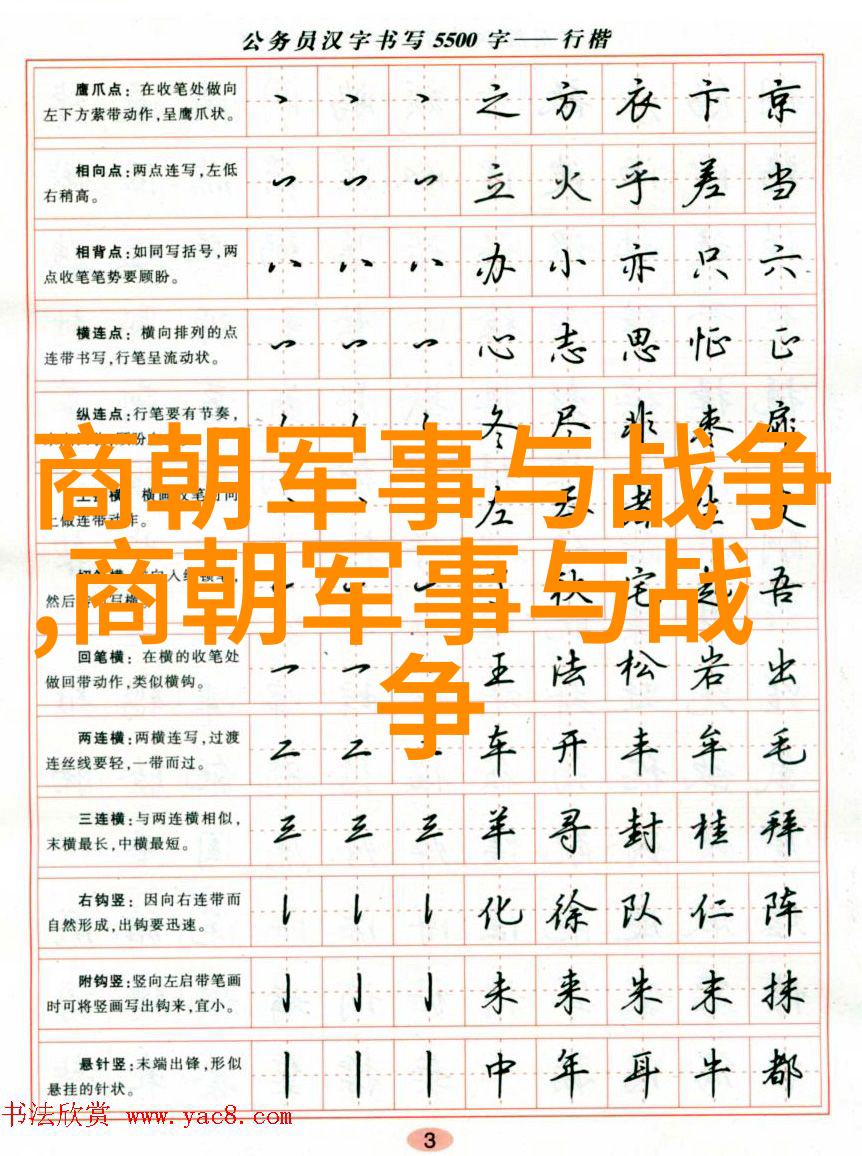 公务员汉字书写5500字——行楷
鹰爪点：在收笔处做向
左下方萦带动作，呈鹰爪状。
之 方 衣 卞 京
相向点：两点连写，左低
右稍高。
立 火 乎 差 当
相背点：如同写括号，两
点收笔笔势要顾盼。
办 小 亦 只 六
横连点：横向排列的点
连带书写，行笔呈流动状。
心 志 思 怔 正
纵连点：行笔要有节奏，
冬 尽 非 枣 扉
商朝军事与战争
,商朝军事与战
争
左
上做连带动作。
然后
宅 起 吾
回笔横：在横的收笔处
做回带动作，类似横钩。
王 法 松 岩 出
两连横：两横连写，过渡
连丝线要轻，一带而过。
车 开 丰 牟 毛
三连横：与两连横相似，
末横最长，中横最短。
羊 寻 封 桂 拜
右钩竖：因向右连带而
自然形成，出钩要迅速。
化 徐 队 仁 阵
附钩竖：竖向左启带笔画
时可将竖画写出钩来，宜小。
未 来 朱 末 抹
悬针竖：末端出锋，形似
悬挂的针状。
中 年 耳 牛 都
书法欣赏 www.yac8.com
3